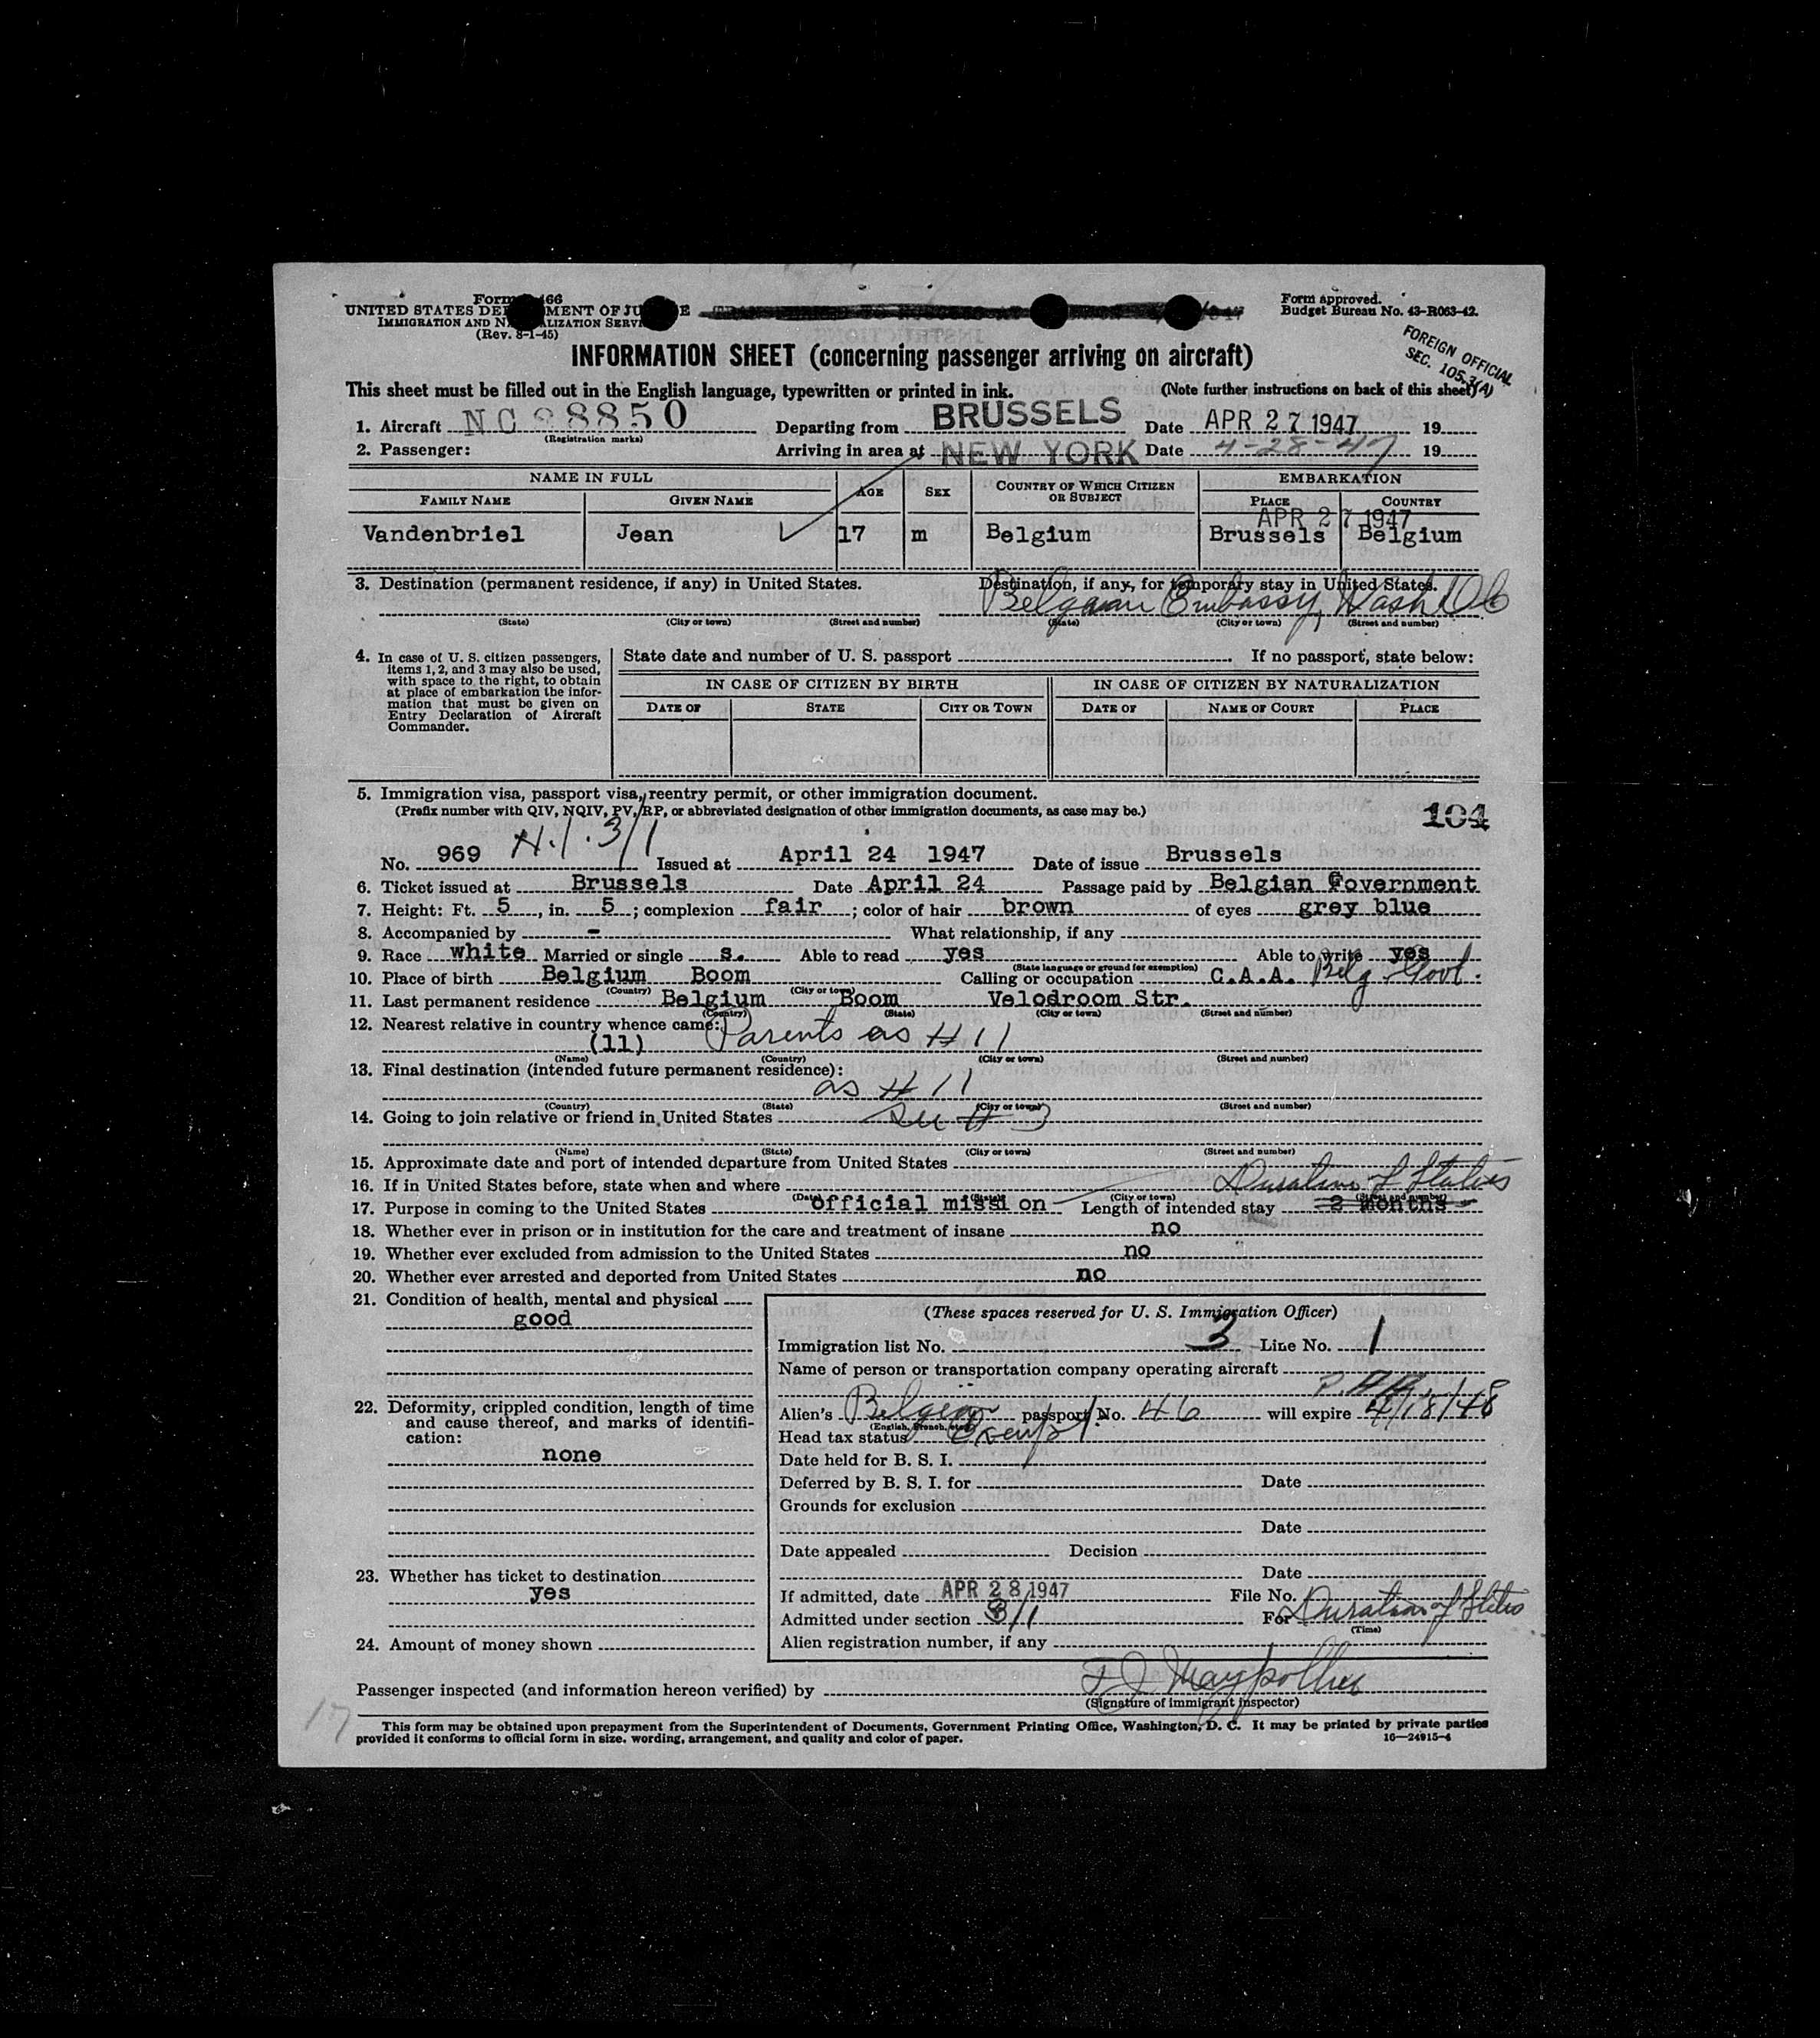 Form 466
UNITED STATES DE MENT OF JU E
IMMIGRATION AND N ALIZATION SERVI
(Rev. 8-1-45)
Form approved.
Budget Bureau No. 43-R063-42.
FOREIGN OFFICIAL
SEC. 105.3(A)
INFORMATION SHEET (concerning passenger arriving on aircraft)
This sheet must be filled out in the English language, typewritten or printed in ink. (Note further instructions on back of this sheet)
1. Aircraft NC 88850 Departing from BRUSSELS Date APR 27 1947 19
(Registration marks)
2. Passenger: Arriving in area at NEW YORK Date 4-28-47 19
NAME IN FULL AGE SEX COUNTRY OF WHICH CITIZEN OR SUBJECT EMBARKATION
FAMILY NAME GIVEN NAME PLACE COUNTRY
APR 27 1947
Vandenbriel Jean 17 m Belgium Brussels Belgium
3. Destination (permanent residence, if any) in United States. Destination, if any, for temporary stay in United States.
Belgian Embassy, Wash DC
(State) (City or town) (Street and number) (State) (City or town) (Street and number)
4. In case of U. S. citizen passengers, items 1, 2, and 3 may also be used, with space to the right, to obtain at place of embarkation the information that must be given on Entry Declaration of Aircraft Commander.
State date and number of U. S. passport If no passport, state below:
IN CASE OF CITIZEN BY BIRTH IN CASE OF CITIZEN BY NATURALIZATION
DATE OF STATE CITY OR TOWN DATE OF NAME OF COURT PLACE
5. Immigration visa, passport visa, reentry permit, or other immigration document.
(Prefix number with QIV, NQIV, PV, RP, or abbreviated designation of other immigration documents, as case may be.)
104
No. 969 3/1 Issued at April 24 1947 Date of issue Brussels
6. Ticket issued at Brussels Date April 24 Passage paid by Belgian Government
7. Height: Ft. 5, in. 5; complexion fair; color of hair brown of eyes grey blue
8. Accompanied by - What relationship, if any
9. Race white Married or single s. Able to read yes Able to write yes
(State language or ground for exemption)
10. Place of birth Belgium Boom Calling or occupation C.A.A. Belg Govt.
(Country) (City or town)
11. Last permanent residence Belgium Boom Velodroom Str.
(Country) (State) (City or town) (Street and number)
12. Nearest relative in country whence came:
(11) Parents as # 11
(Name) (Country) (City or town) (Street and number)
13. Final destination (intended future permanent residence):
as # 11
(Country) (State) (City or town) (Street and number)
14. Going to join relative or friend in United States See # 3
(Name) (State) (City or town) (Street and number)
15. Approximate date and port of intended departure from United States
16. If in United States before, state when and where Duration of Status
(Date) (State) (City or town) (Street and number)
17. Purpose in coming to the United States official mission Length of intended stay 2 months
18. Whether ever in prison or in institution for the care and treatment of insane no
19. Whether ever excluded from admission to the United States no
20. Whether ever arrested and deported from United States no
21. Condition of health, mental and physical
good
22. Deformity, crippled condition, length of time and cause thereof, and marks of identification:
none
23. Whether has ticket to destination
yes
24. Amount of money shown
(These spaces reserved for U. S. Immigration Officer)
Immigration list No. 3 Line No. 1
Name of person or transportation company operating aircraft
P.A.A.
Alien's Belgian passport No. 46 will expire 4/18/48
(English, French, etc.)
Head tax status Exempt
Date held for B. S. I.
Deferred by B. S. I. for Date
Grounds for exclusion
Date
Date appealed Decision
Date
If admitted, date APR 28 1947 File No.
Admitted under section 3/1 For Duration of Status
(Time)
Alien registration number, if any
Passenger inspected (and information hereon verified) by
(Signature of immigrant inspector)
17
This form may be obtained upon prepayment from the Superintendent of Documents, Government Printing Office, Washington, D. C. It may be printed by private parties
provided it conforms to official form in size, wording, arrangement, and quality and color of paper. 16—24915-4